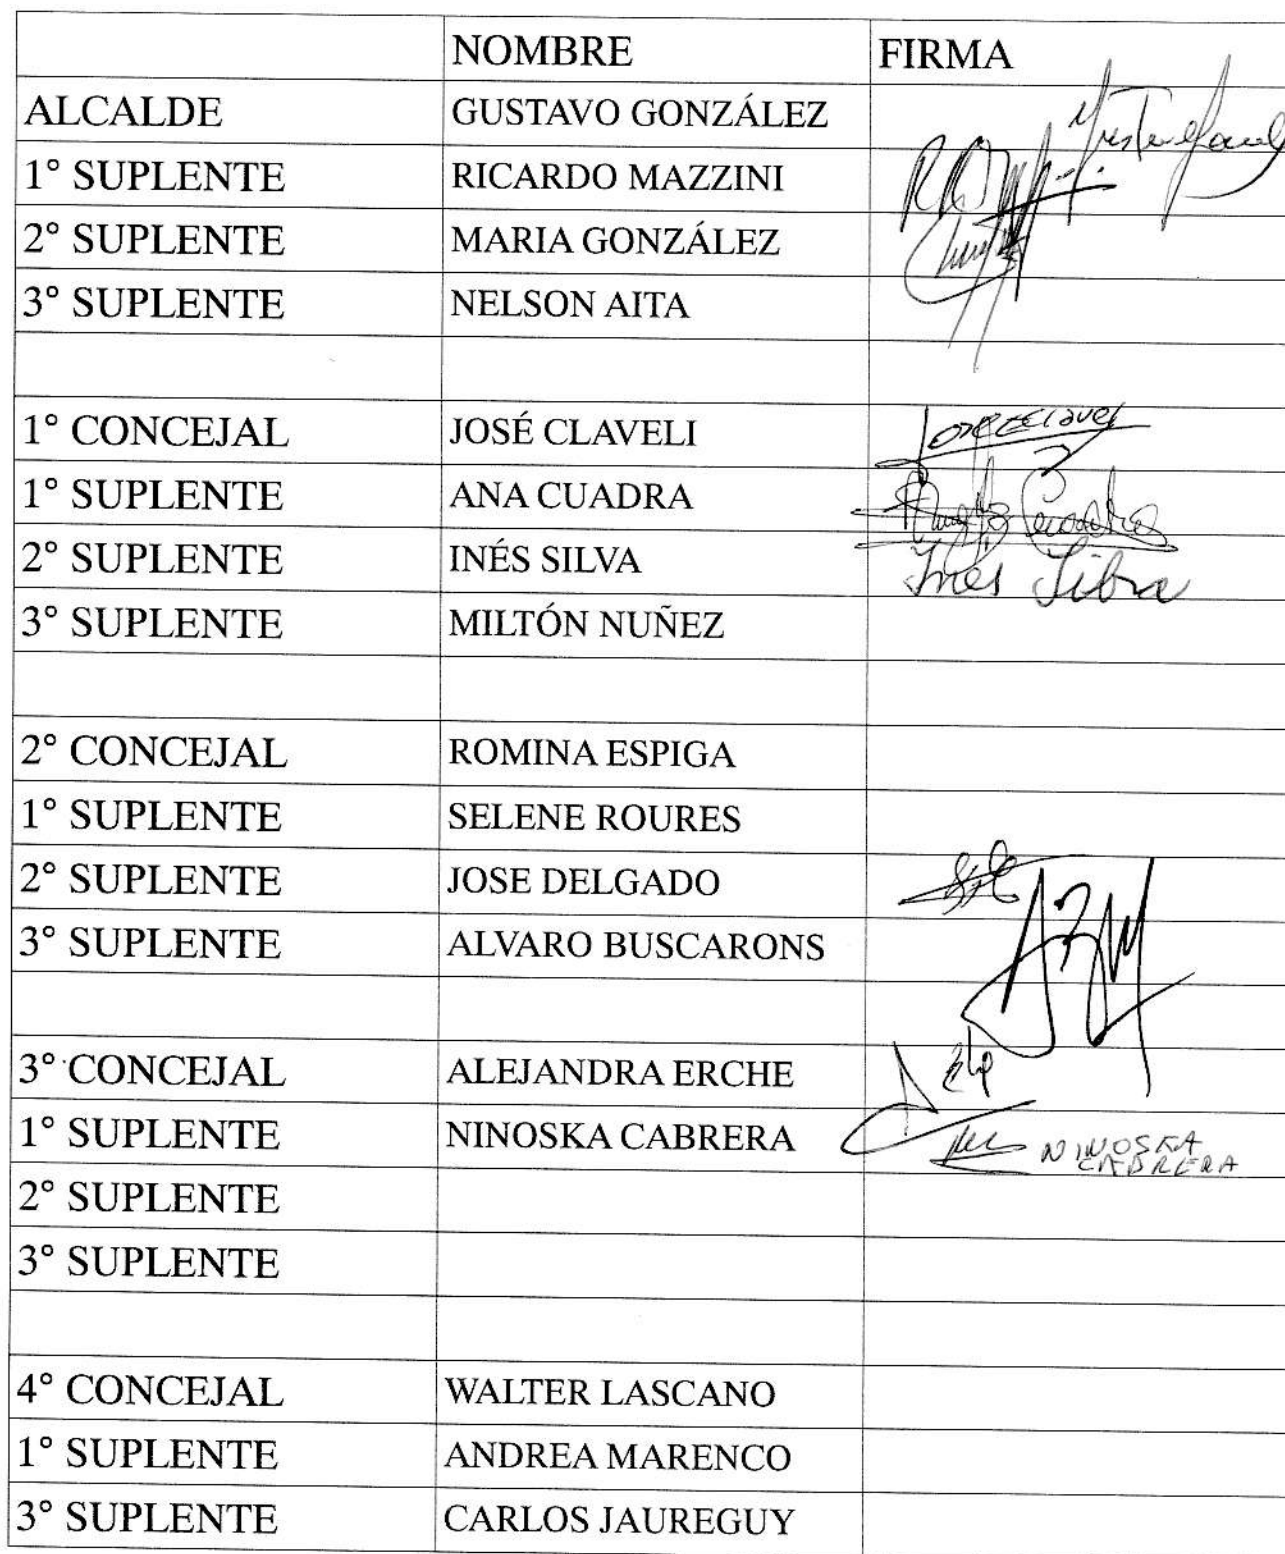 NOMBRE FIRMA
ALCALDE GUSTAVO GONZÁLEZ
1° SUPLENTE RICARDO MAZZINI
2° SUPLENTE MARIA GONZÁLEZ
3° SUPLENTE NELSON AITA
1° CONCEJAL JOSÉ CLAVELI
1° SUPLENTE ANA CUADRA
2° SUPLENTE INÉS SILVA Ines Silva
3° SUPLENTE MILTÓN NUÑEZ
2° CONCEJAL ROMINA ESPIGA
1° SUPLENTE SELENE ROURES
2° SUPLENTE JOSE DELGADO
3° SUPLENTE ALVARO BUSCARONS
3° CONCEJAL ALEJANDRA ERCHE
1° SUPLENTE NINOSKA CABRERA NINOSKA CABRERA
2° SUPLENTE
3° SUPLENTE
4° CONCEJAL WALTER LASCANO
1° SUPLENTE ANDREA MARENCO
3° SUPLENTE CARLOS JAUREGUY